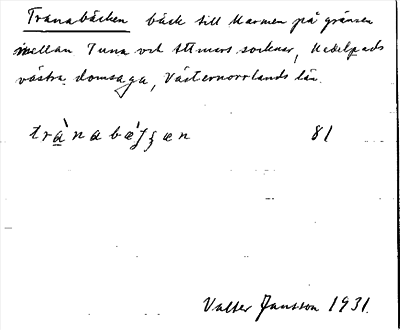 Tranabäcken bäck till Marmen på gränsen
mellan Tuna och Attmars socknar, Medelpads
västra domsaga, Västernorrlands län.
81
Valter Jansson 1931.